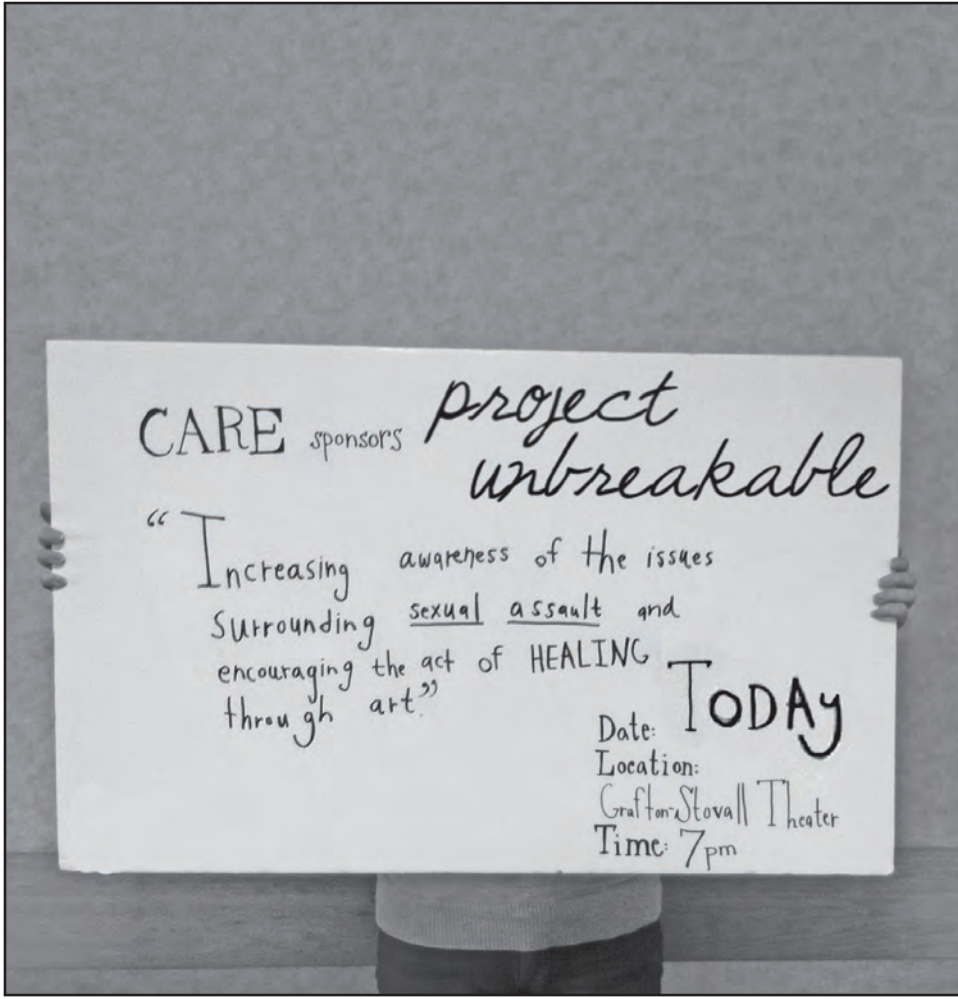 CARE sponsors project
unbreakable
“Increasing awareness of the issues
surrounding sexual assault and
encouraging the act of HEALING
through art.”
Date: TODAY
Location:
Grafton-Stovall Theater
Time: 7pm